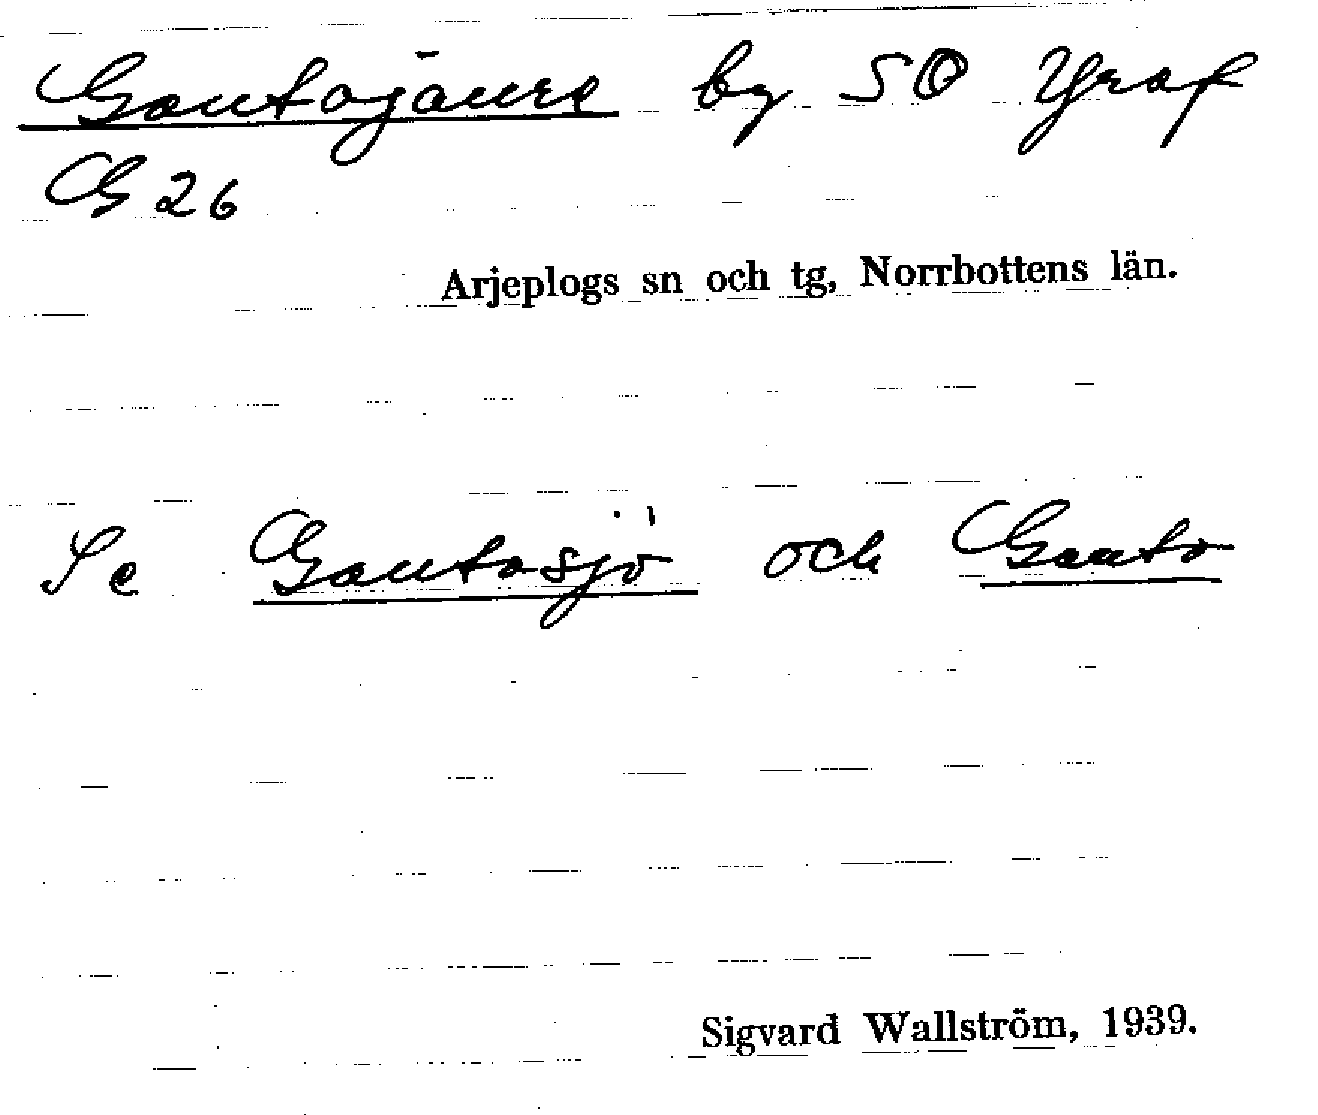 Gautojāure by SO Yraf
G 26
Arjeplogs sn och tg, Norrbottens län.
Se Gautosjö och Gauto
Sigvard Wallström, 1939.